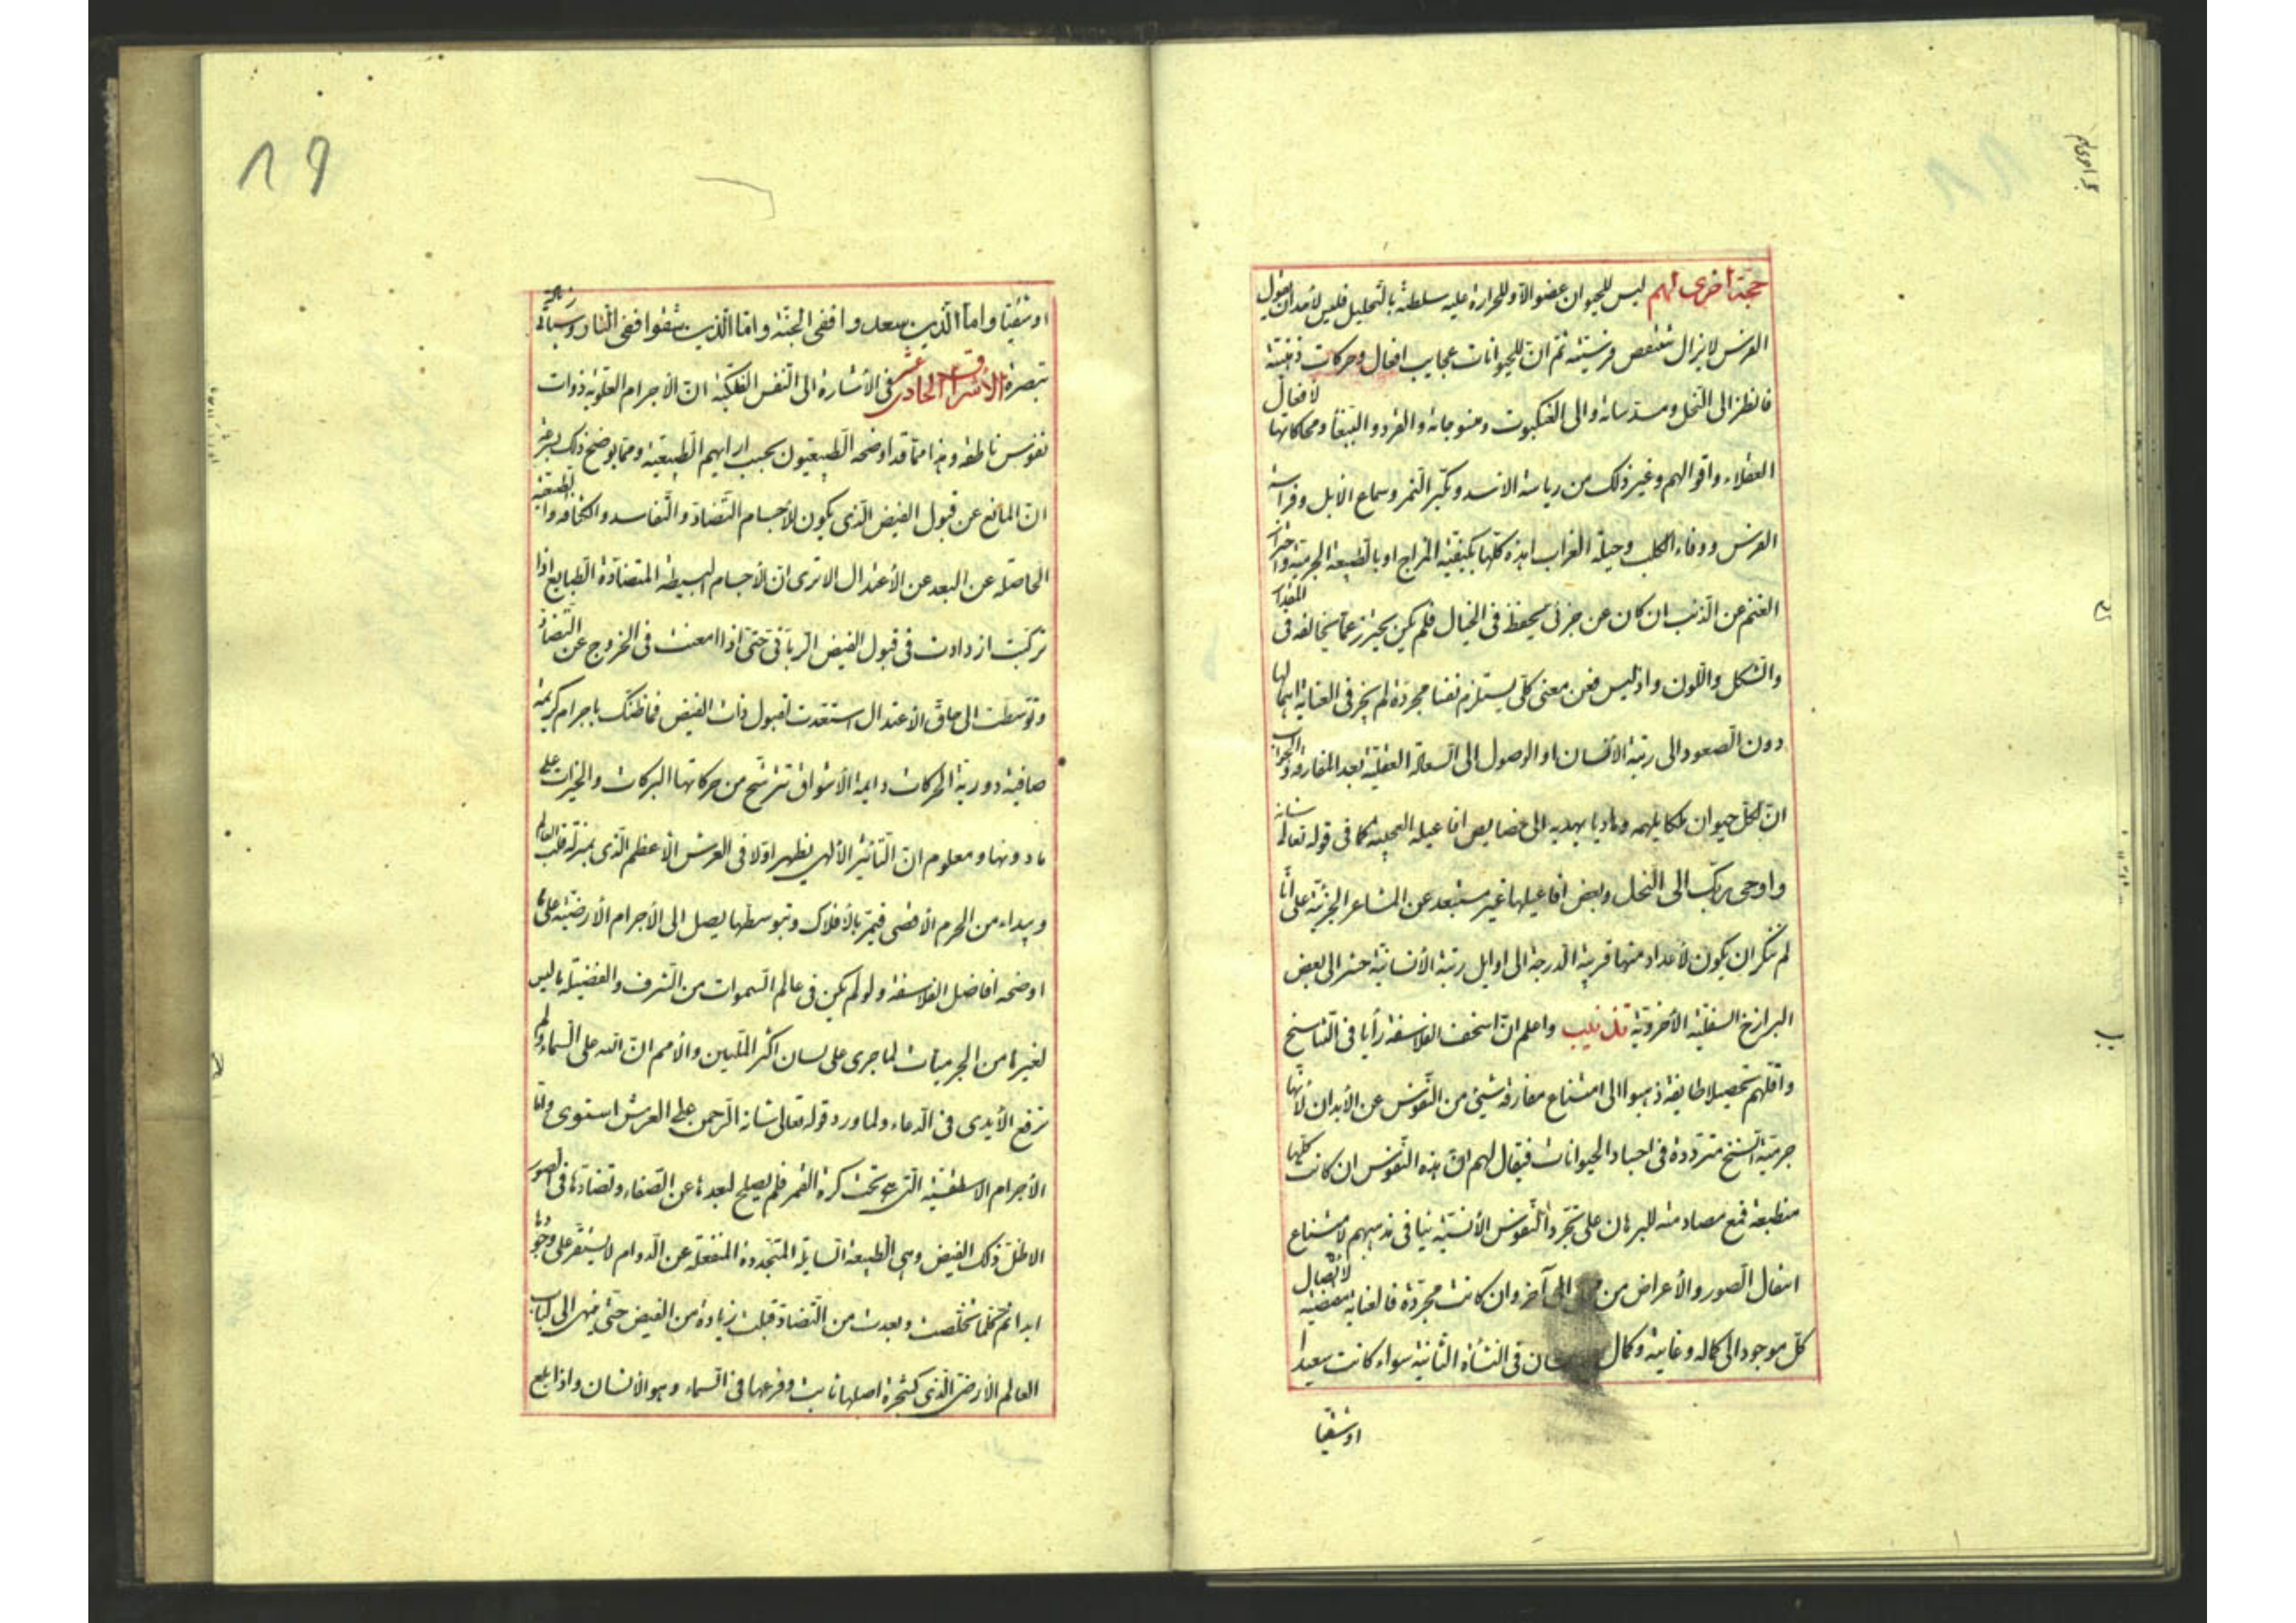 حجة اخرى لهم ليس للحيوان عضو الا و للحرارة عليه سلطنة بالتحليل فليس لاحد ان يقول
الفرس لا يزال تنتقص فرسيته ثم ان للحيوانات عجايب افعال وحركات ذهنية
فانظر الى النحل ومسدساته والى العنكبوت ومنسوجاته والقرد والببغا ومحاكاتها لافعال
العقلاء واقوالهم وغير ذلك من رياسة الاسد وتكبر النمر وسماع الابل وفراسة
الفرس ووفاء الكلب وحيلة الغراب اهذه كلها بكيفية المزاج او بالطبيعة الجرمية واحتراز
الغنم عن الذئب ان كان عن جزئى محفظ فى الخيال فلم يكن يحترز عما يخالفه فى المقدار
والشكل واللون واذ ليس فعن معنى كلى يستلزم نفسا مجردة لم يجز فى العناية اهمالها
دون الصعود الى رتبة الانسان او الوصول الى السعادة العقلية بعد المفارقة والجواب
ان لكل حيوان ملكا يلهمه وهاديا يهديه الى خصايص افاعيله العجيبة كما فى قوله تعالى شانه
واوحى ربك الى النحل وبعض افاعيلها غير مستبعد عن المشاعر الجزئية على انا
لم ننكر ان يكون لاعداد منها قريبة الدرجة الى اوايل رتبة الانسانية حشر الى بعض
البرازخ السفلية الأخروية تذنيب واعلم ان اسخف الفلاسفة رأيا فى التناسخ
واقلهم تحصيلا طايفة ذهبوا الى امتناع مفارقة شئ من النفوس عن الأبدان لأنها
جرمية السنخ مترددة فى اجساد الحيوانات فيقال لهم ان هذه النفوس ان كانت كلها
منطبعة فمع مصادمته للبرهان على تجرد النفوس الأنسية ينافى مذهبهم لامتناع
انتقال الصور والأعراض من الى آخر وان كانت مجردة فالعناية مقتضية لايصال
كل موجود الى كماله وغايته وكمال فى النشأة الثانية سواء كانت سعيدا
او شقيا
٨٩
او شقيا واما الذين سعدوا ففى الجنة واما الذين شقوا ففى النار وسياتى زيادة
تبصرة الاشراق الحادى عشر فى الأشارة الى النفس الفلكية ان الاجرام العلوية ذوات
نفوس ناطقة وهذا مما قد اوضحه الطبيعيون بحسب ارائهم الطبيعية ومما يوضح ذلك بسرعة
ان المانع عن قبول الفيض الذى يكون للأجسام التضاد والتفاسد والكثافة والطبيعة
الحاصلة عن البعد عن الأعتدال الا ترى ان الأجسام البسيطة المتضادة الطبايع اذا
تركبت ازدادت فى قبول الفيض الربانى حتى اذا امعنت فى الخروج عن التضاد
وتوسطت الى حاق الأعتدال استعدت لقبول ذات الفيض فما ظنك باجرام كريمة
صافية دورية الحركات دايمة الأشواق تترشح من حركاتها البركات والخيرات على
ما دونها ومعلوم ان التأثير الألهى يظهر اولا فى العرش الأعظم الذى بمنزلة قلب العالم
ويبداء من الجرم الأقصى فيمر بالأفلاك وبتوسطها يصل الى الأجرام الأرضية على ما
اوضحه افاضل الفلاسفة ولو لم يكن فى عالم السموات من الشرف والفضيلة ما ليس
لغيرها من الجرميات لما جرى على لسان اكثر المليين والأمم ان الله على السماء ولم
ترفع الأيدى فى الدعاء ولما ورد قوله تعالى شانه الرحمن على العرش استوى واما
الأجرام الاسطقسية التى تحت كرة القمر فلم يصلح لبعدها عن الصفاء وتضادها فى الصور
الا ظل ذلك الفيض وهى الطبيعة السايلة المتجددة المنفعلة عن الدوام لا يستقر على وجودها
ابدا ثم كلما تخلصت وبعدت من التضاد قبلت زيادة من الفيض حتى ينهى الى لباب
العالم الأرضى الذى كشجرة اصلها ثابت وفرعها فى السماء وهو الأنسان واذا بلغ